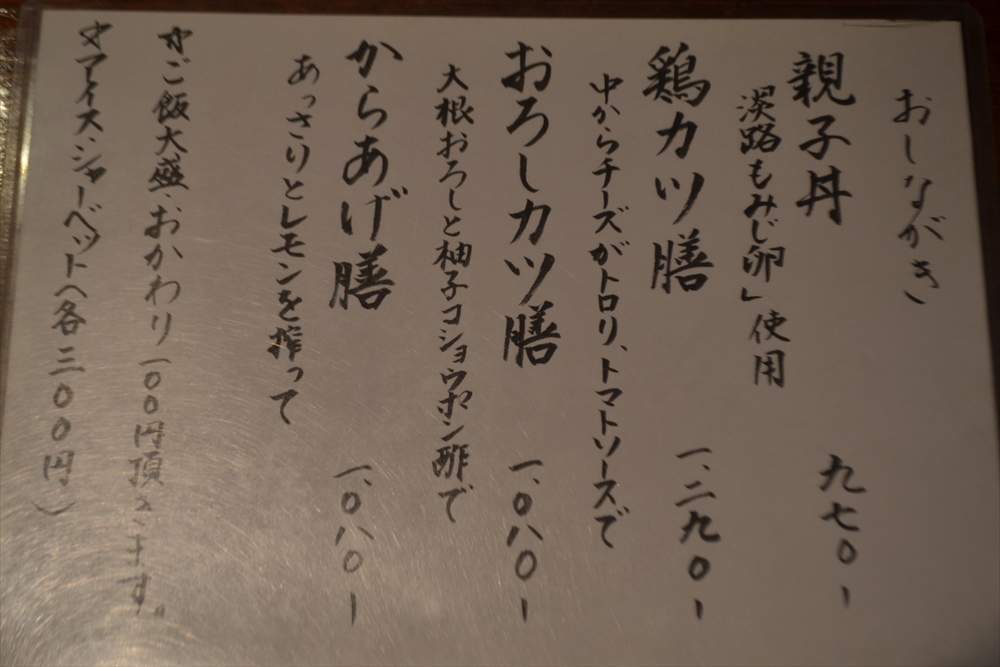 おしながき
親子丼 九七〇ー
淡路もみじ卵」使用
鶏カツ膳 一、二九〇ー
中からチーズがトロリ、トマトソースで
おろしカツ膳 一、〇八〇ー
大根おろしと柚子コショウポン酢で
からあげ膳 一、〇八〇ー
あっさりとレモンを搾って
☆ご飯大盛・おかわり一〇〇円頂きます。
☆アイス・シャーベットへ各三〇〇円)